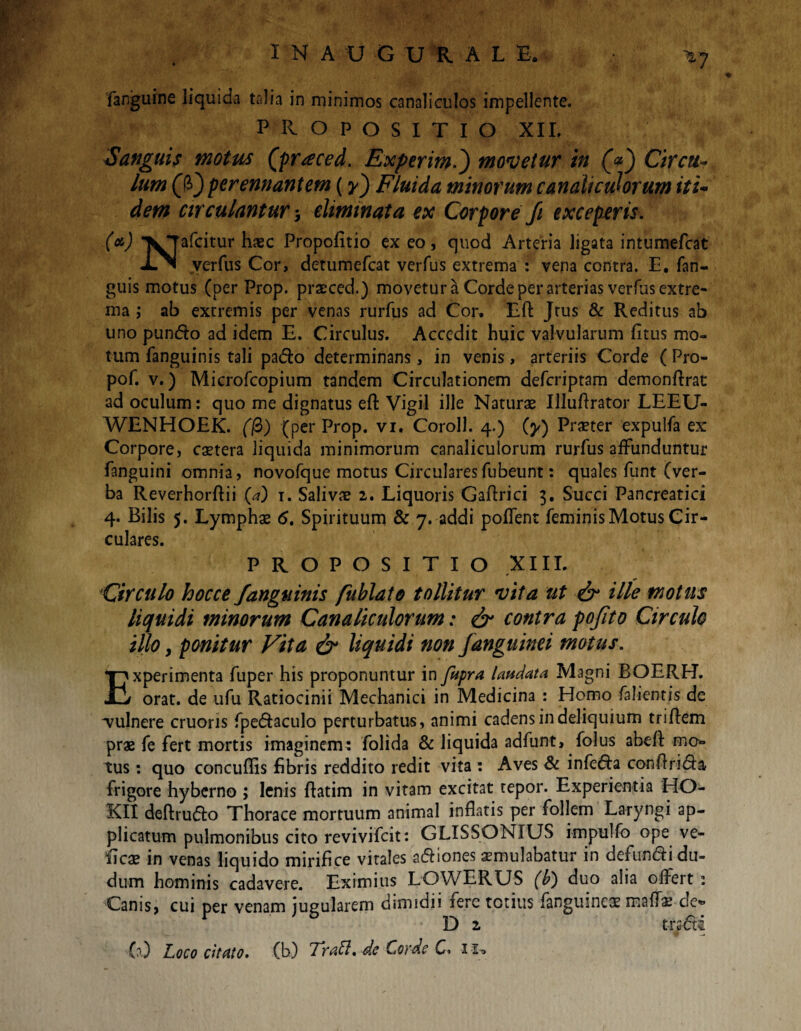 INAUGURALE. 27
ſanguine liquida talia in minimos canaliculos impellente.
PROPOSITIO XII.
Sanguis motus (præced. Experim.) movetur in (α) Circu-
lum (β) perennantem (γ) Fluida minorum canaliculorum iti-
dem circulantur; eliminata ex Corpore ſi exceperis.
(α) Naſcitur hæc Propoſitio ex eo, quod Arteria ligata intumeſcat
verſus Cor, detumeſcat verſus extrema : vena contra. E. ſan-
guis motus (per Prop. præced.) movetur à Corde per arterias verſus extre-
ma ; ab extremis per venas rurſus ad Cor. Eſt Itus & Reditus ab
uno puncto ad idem E. Circulus. Accedit huic valvularum ſitus mo-
tum ſanguinis tali pacto determinans, in venis, arteriis Corde (Pro-
poſ. v.) Microſcopium tandem Circulationem deſcriptam demonſtrat
ad oculum: quo me dignatus eſt Vigil ille Naturæ Illuſtrator LEEU-
WENHOEK. (β) (per Prop. VI. Coroll. 4.) (γ) Præter expulſa ex
Corpore, cætera liquida minimorum canaliculorum rurſus affunduntur
ſanguini omnia, novoſque motus Circulares ſubeunt: quales ſunt (ver-
ba Reverhorſtii (a) 1. Salivæ 2. Liquoris Gaſtrici 3. Succi Pancreatici
4. Bilis 5. Lymphæ 6. Spirituum & 7. addi poſſent ſeminis Motus Cir-
culares.
PROPOSITIO XIII.
Circulo hocce ſanguinis ſublato tollitur vita ut & ille motus
liquidi minorum Canaliculorum: & contra poſito Circulo
illo, ponitur Vita & liquidi non ſanguinei motus.
Experimenta ſuper his proponuntur in ſupra laudata Magni BOERH.
orat. de uſu Ratiocinii Mechanici in Medicina : Homo ſalientis de
vulnere cruoris ſpectaculo perturbatus, animi cadens in deliquium triſtem
præ ſe fert mortis imaginem: ſolida & liquida adſunt, ſolus abeſt mo-
tus : quo concuſſis fibris reddito redit vita : Aves & inſecta conſtricta
frigore hyberno ; lenis ſtatim in vitam excitat tepor. Experientia HO-
KII deſtructo Thorace mortuum animal inflatis per follem Laryngi ap-
plicatum pulmonibus cito reviviſcit: GLISSONIUS impulſo ope ve-
ſicæ in venas liquido mirifice vitales actiones æmulabatur in defuncti du-
dum hominis cadavere. Eximius LOWERUS (b) duo alia offert :
Canis, cui per venam jugularem dimidii fere totius ſanguineæ maſſæ de-
D 2 tracti
(a) Loco citato. (b) Tract. de Corde C. II.